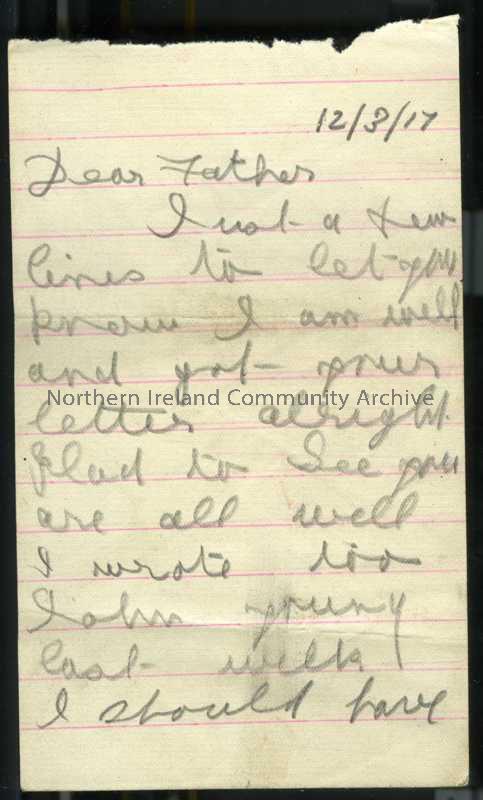 12/3/17
Dear Father
Just a few
lines to let you
know I am well
and got your
Northern Ireland Community Archive
letter alright
Glad to See you
are all well
I wrote too
John young
last week
I should have